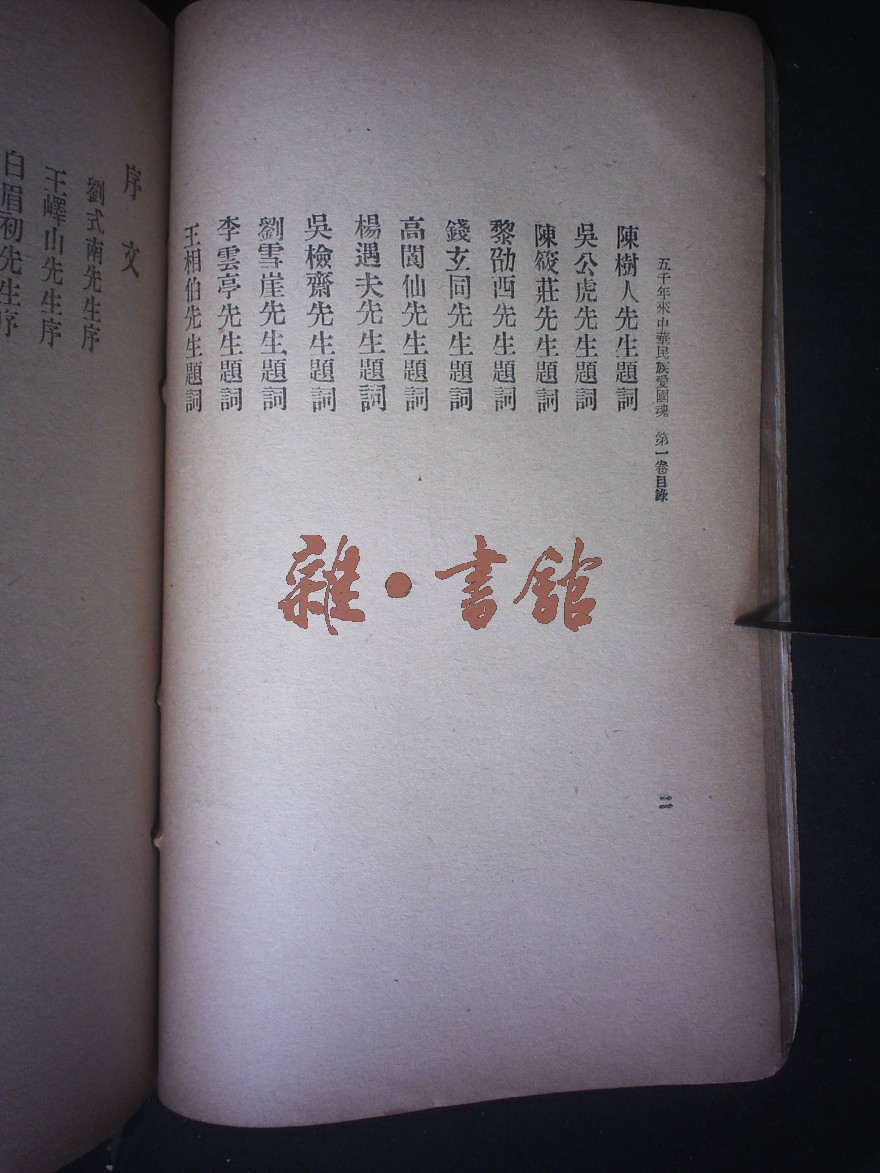 五千年來中華民族愛國魂　第一卷目錄
二
陳樹人先生題詞
吳公虎先生題詞
陳筱莊先生題詞
黎劭西先生題詞
錢玄同先生題詞
高閬仙先生題詞
楊遇夫先生題詞
吳檢齋先生題詞
劉雪崖先生題詞
李雲亭先生題詞
王相伯先生題詞
序文
劉式南先生序
王嶧山先生序
白眉初先生序
雜•書館